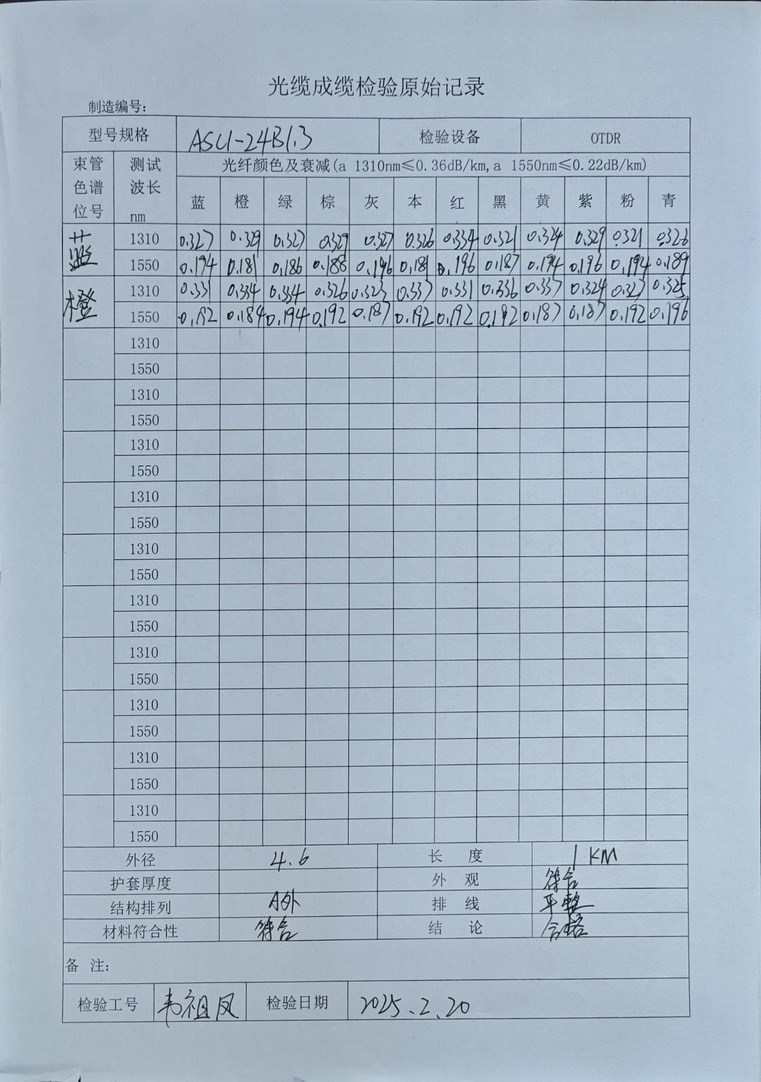 光缆成缆检验原始记录
制造编号:
型号规格 ASU-24B1.3 检验设备 OTDR
束管色谱位号 测试波长nm 光纤颜色及衰减(a 1310nm≤0.36dB/km,a 1550nm≤0.22dB/km)
蓝 橙 绿 棕 灰 本 红 黑 黄 紫 粉 青
蓝 1310 0.327 0.329 0.327 0.329 0.327 0.326 0.334 0.321 0.324 0.329 0.321 0.326
1550 0.194 0.181 0.186 0.188 0.196 0.181 0.196 0.187 0.194 0.196 0.194 0.189
橙 1310 0.331 0.334 0.334 0.326 0.323 0.337 0.331 0.336 0.337 0.324 0.327 0.325
1550 0.192 0.184 0.194 0.192 0.187 0.192 0.192 0.192 0.187 0.187 0.192 0.196
1310
1550
1310
1550
1310
1550
1310
1550
1310
1550
1310
1550
1310
1550
1310
1550
1310
1550
1310
1550
外径 4.6 长 度 1 KM
护套厚度 外 观 符合
结构排列 A外 排 线 平整
材料符合性 符合 结 论 合格
备 注:
检验工号 韦祖凤 检验日期 2025.2.20